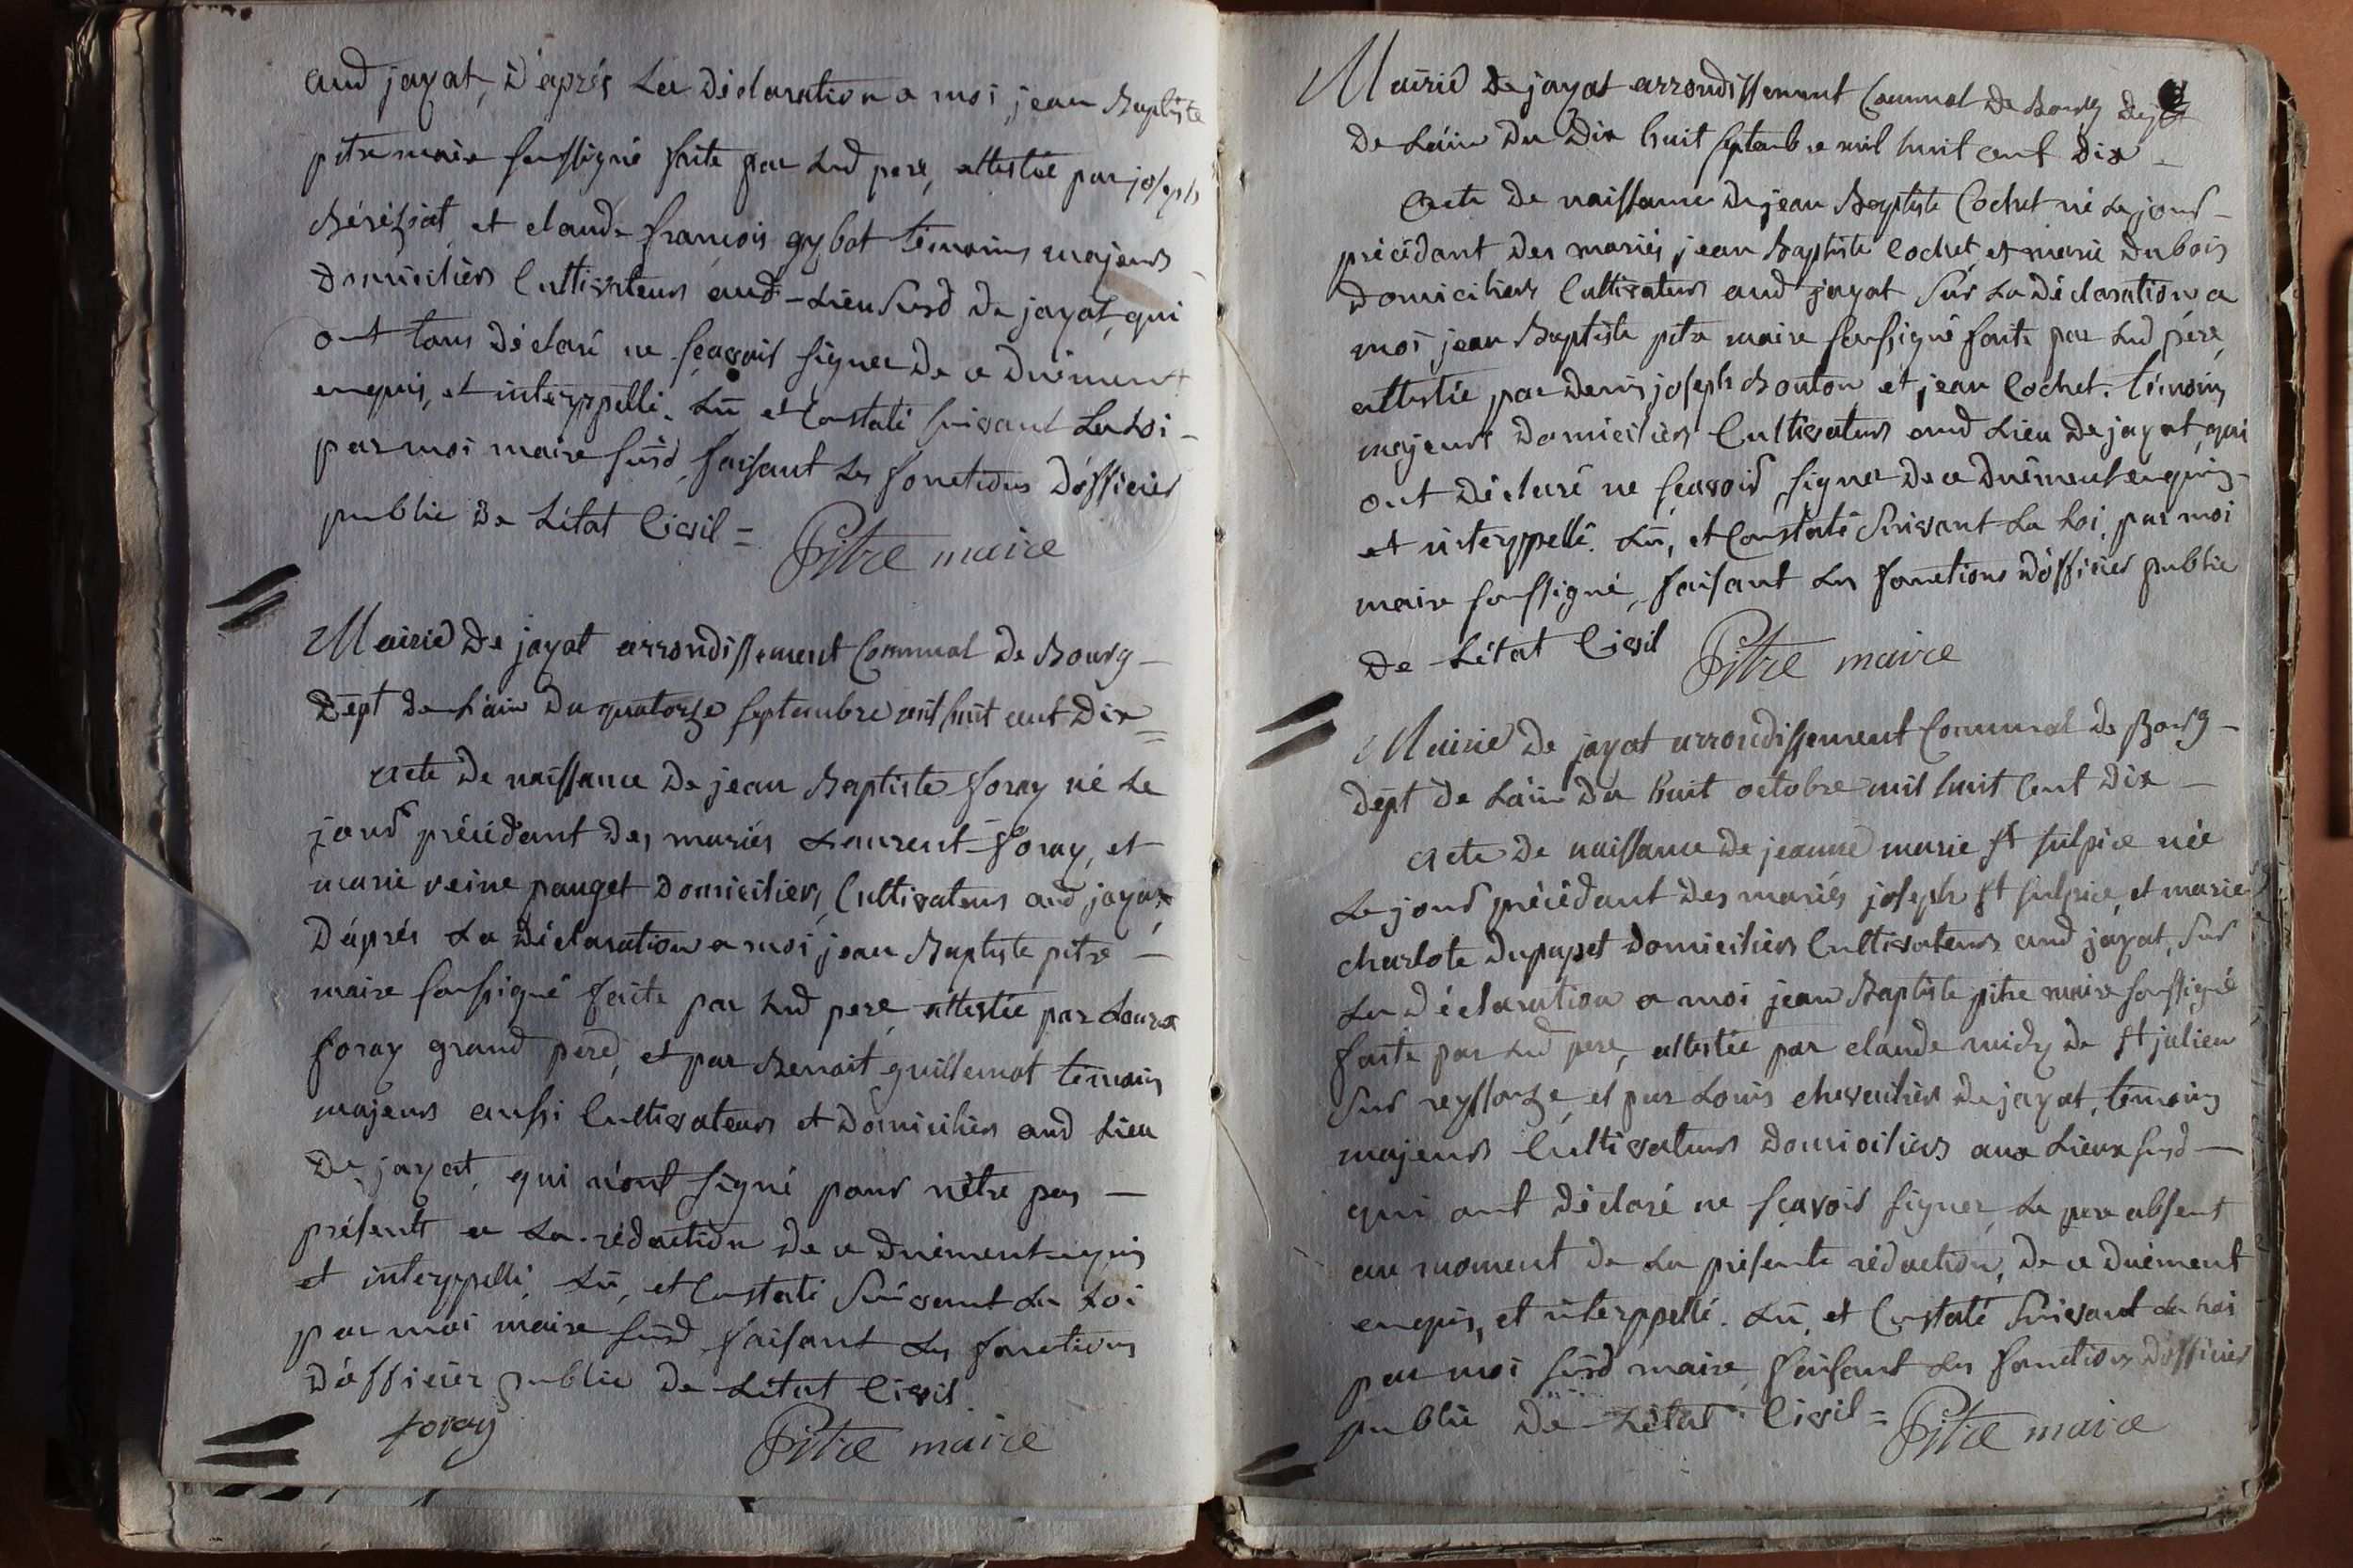 aud jayat, d'après La Déclaration a moi jean Baptiste
pitre maire soussigné faite par Led pere, attestée par joseph
Béréziat, et claude françois gybot témoins majeurs
domiciliers Cultivateurs aud-Lieu susd de jayat, qui
ont tous déclaré ne sçavoir signer de ce duëment
enquis, et interppellé. Lû et Constaté suivant La Loi -
par moi maire susd, faisant Les fonctions d'officier
public de L'état Civil = Pitre maire
Mairie De jayat arrondissement Communal De Bourg -
Dept de L'ain Du quatorze septembre mil huit cent Dix =
Acte De naissance De jean Baptiste foray né Le
jour précédant Des mariés Laurent foray, et
marie reine pauget Domiciliers, Cultivateurs aud jayat,
D'après La Déclaration a moi jean Baptiste pitre -
maire soussigné faite par Led pere, attestée par Laurt
foray grand pere, et par Benoit guillemot témoins
majeurs aussi Cultivateurs et Domiciliers aud Lieu
De jayat, qui n'ont signé pour n'être pas -
présents a La rédaction De ce duëment enquis
et interppellé, Lû, et Constaté Suivant La Loi
par moi maire susd faisant Les fonctions
D'officier public De L'état Civil.
foray Pitre maire
Mairie De jayat arrondissement Communal De Bourg Dept
De L'ain Du Dix huit septembre mil huit cent Dix -
Acte De naissance De jean Baptiste Cochet né Le jour -
précédant Des mariés jean Baptiste Cochet, et marie Dubois
Domiciliers Cultivateurs aud jayat Sur La Déclaration a
moi jean Baptiste pitre maire soussigné faite par Led père,
attestée par Denis joseph Bouton et jean Cochet. témoins
majeurs Domiciliers Cultivateurs aud Lieu De jayat, qui
ont Déclaré ne sçavoir signer De ce duëment enquis -
et interppellé. Lû, et Constaté Suivant La Loi, par moi
maire soussigné, faisant Les fonctions D'officier public
De L'état Civil Pitre maire
Mairie De jayat arrondissement Communal De Bourg -
Dept de L'ain Du huit octobre mil huit Cent Dix -
Acte De naissance De jeanne marie St sulpice née
Le jour précédant Des mariés joseph St sulpice, et marie
charlote Dupupet Domiciliers Cultivateurs aud jayat, Sur
La Déclaration a moi jean Baptiste pitre maire soussigné
faite par Led pere, attestée par claude midy De St julien
Sur reyssouze, et par Louis chevailier De jayat, témoins
majeurs Cultivateurs Domiciliers aux Lieux susd -
qui ont Déclaré ne sçavoir signer, Le pere absent
au moment De La présente rédaction, De ce duëment
enquis, et interppellé. Lû, et Constaté Suivant La Loi
par moi susd maire, faisant Les fonctions D'officier
public De L'état Civil = Pitre maire